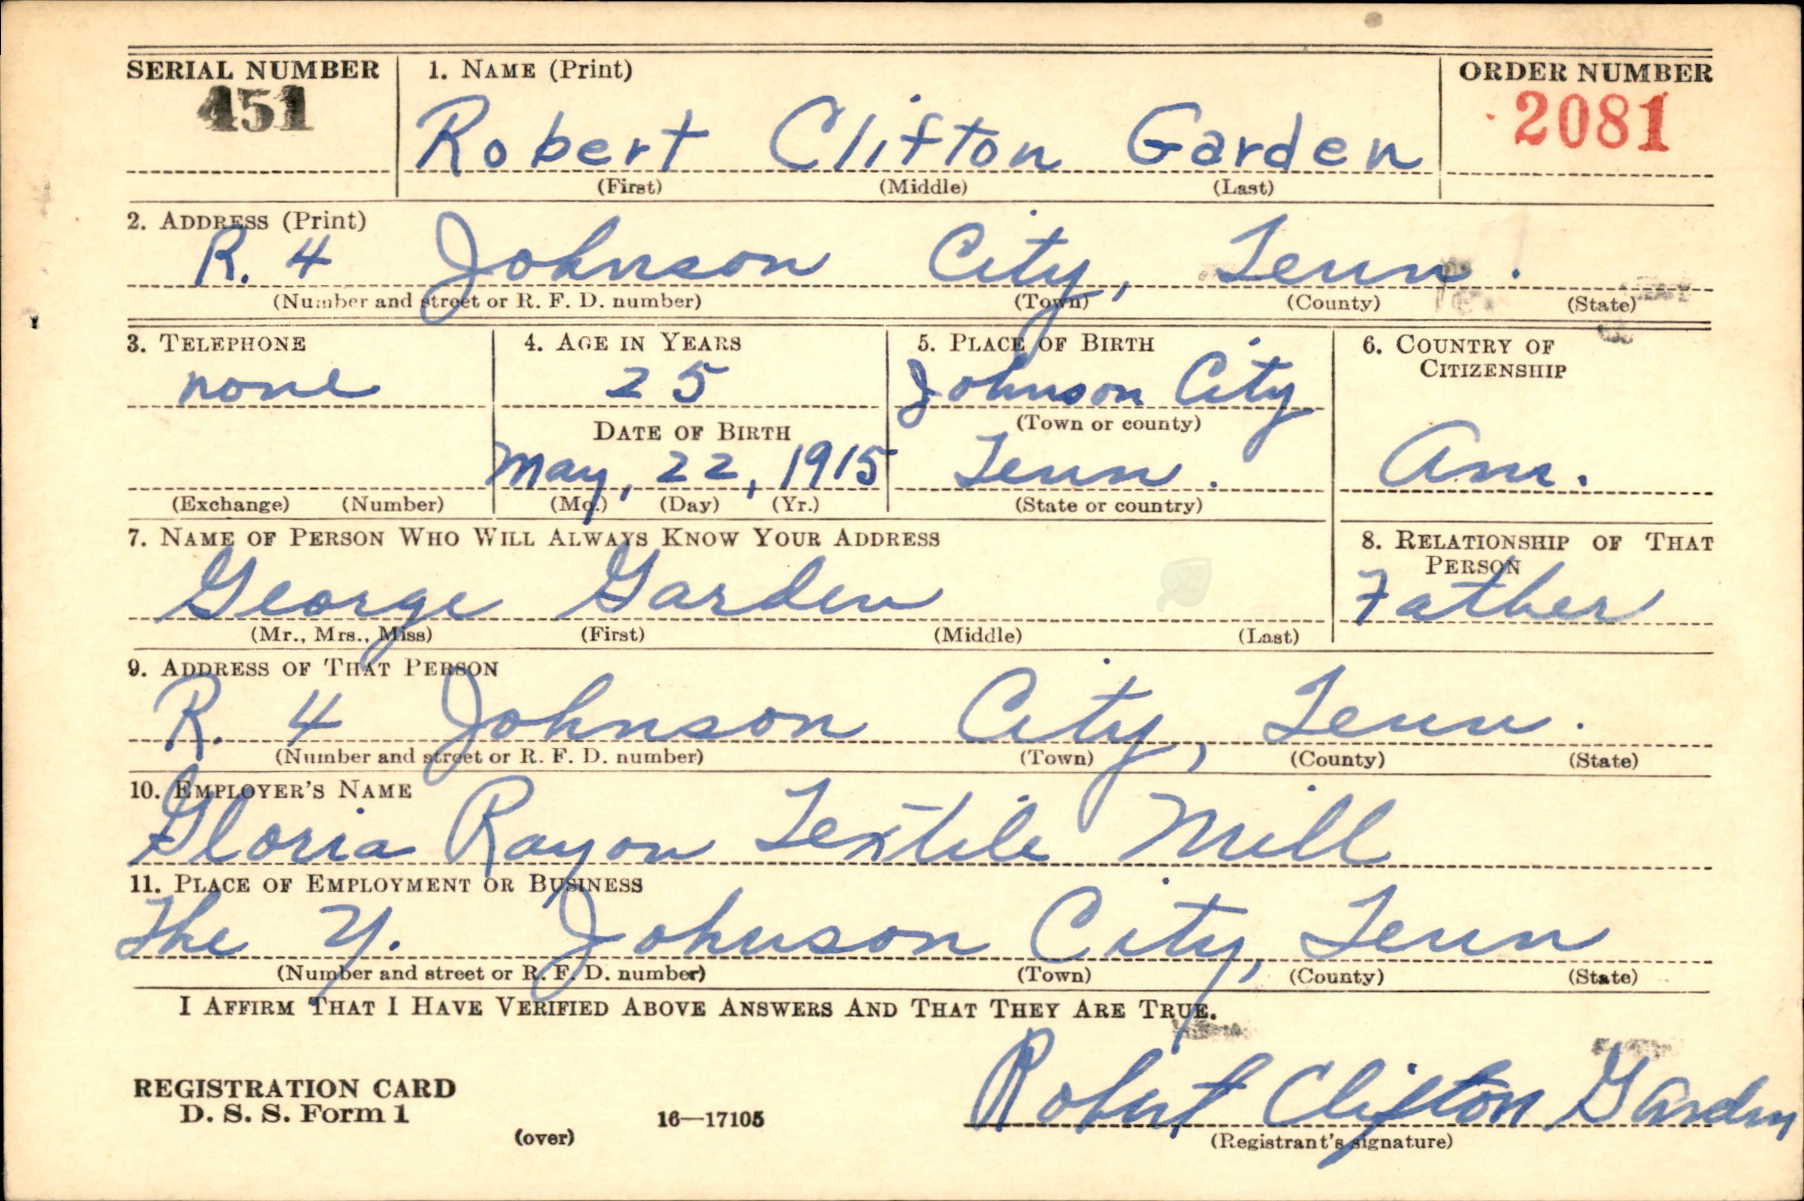 SERIAL NUMBER 1. NAME (Print) ORDER NUMBER
451 Robert Clifton Garden 2081
(First) (Middle) (Last)
2. ADDRESS (Print)
R. 4 Johnson City, Tenn.
(Number and street or R. F. D. number) (Town) (County) (State)
3. TELEPHONE 4. AGE IN YEARS 5. PLACE OF BIRTH 6. COUNTRY OF
CITIZENSHIP
none 25 Johnson City
(Town or county)
DATE OF BIRTH
May, 22, 1915 Tenn. Am.
(Exchange) (Number) (Mo.) (Day) (Yr.) (State or country)
7. NAME OF PERSON WHO WILL ALWAYS KNOW YOUR ADDRESS 8. RELATIONSHIP OF THAT
PERSON
George Garden Father
(Mr., Mrs., Miss) (First) (Middle) (Last)
9. ADDRESS OF THAT PERSON
R. 4 Johnson City, Tenn.
(Number and street or R. F. D. number) (Town) (County) (State)
10. EMPLOYER'S NAME
Gloria Rayon Textile Mill
11. PLACE OF EMPLOYMENT OR BUSINESS
The Y. Johnson City, Tenn
(Number and street or R. F. D. number) (Town) (County) (State)
I AFFIRM THAT I HAVE VERIFIED ABOVE ANSWERS AND THAT THEY ARE TRUE.
Robert Clifton Garden
REGISTRATION CARD
D. S. S. Form 1 16—17105
(over) (Registrant's signature)